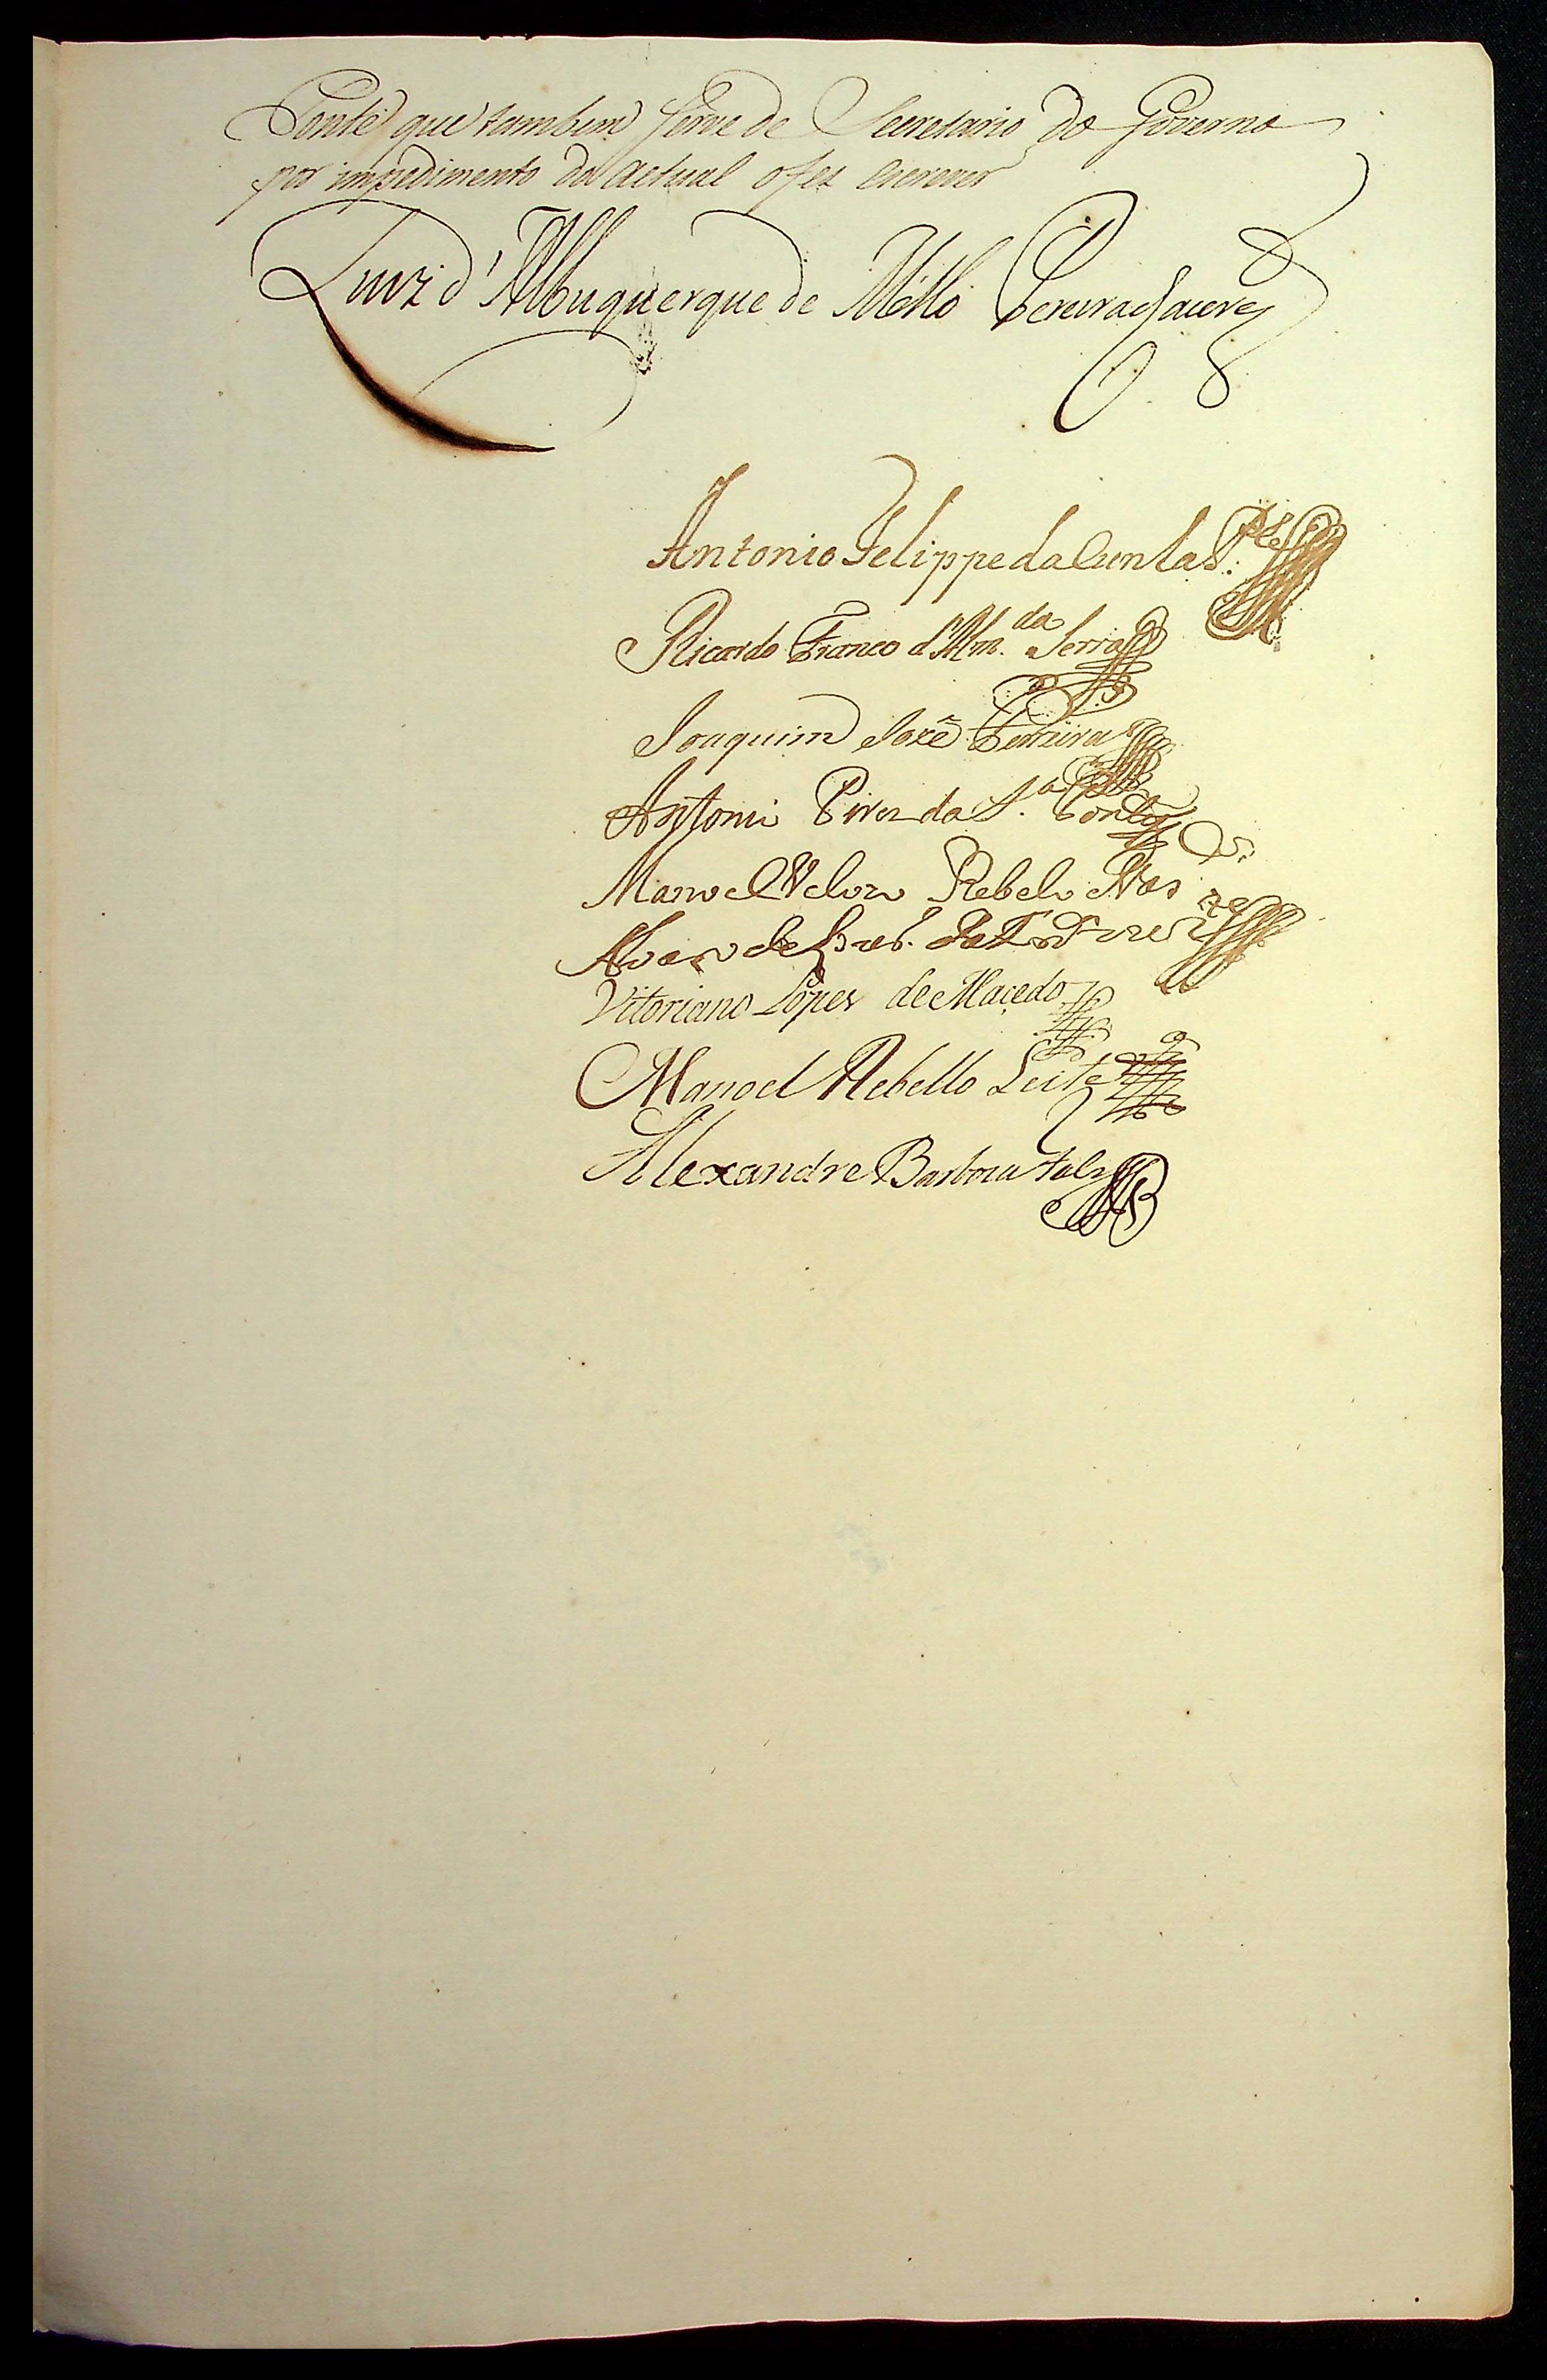 Ponte que tambem serve de Secretario do Governo
por impedimento do actual o fez escrever
Luiz d'Albuquerque de Mello Pereira Caceres
Antonio Felippe da Cunha P.te
Ricardo Franco d'Alm.da Serra
Joaquim Jozé Ferreira
Antonio Pires da S.a Pontes
Manoel Velozo Rebelo Vas
Vitoriano Lopes de Macedo
Manoel Rebello Leite
Alexandre Barboza